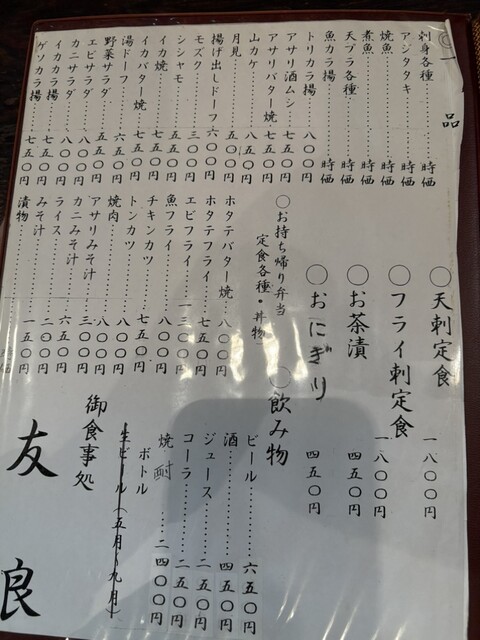 ◎一品
刺身各種……時価
アジタタキ……時価
焼魚……時価
煮魚……時価
天プラ各種……時価
魚カラ揚……時価
トリカラ揚……八〇〇円
アサリ酒ムシ……七五〇円
アサリバター焼……七五〇円
山カケ……八五〇円
月見……
揚げ出しドーフ……六〇〇円
モズク……三〇〇円
シシャモ……五五〇円
イカ焼……七五〇円
イカバター焼……七五〇円
湯ドーフ……六五〇円
野菜サラダ……五五〇円
エビサラダ……八〇〇円
カニサラダ……八〇〇円
イカカラ揚……八〇〇円
ゲソカラ揚……七五〇円
〇天刺定食 一八〇〇円
〇フライ刺定食 一八〇〇円
〇お茶漬 四五〇円
〇おにぎり 四五〇円
〇お持ち帰り弁当
定食各種・丼物
ホタテバター焼……八〇〇円
ホタテフライ……七五〇円
エビフライ……一三〇〇円
魚フライ……八〇〇円
チキンカツ……七五〇円
トンカツ……八〇〇円
焼肉……八〇〇円
アサリみそ汁……三〇〇円
カニみそ汁……六五〇円
ライス……二〇〇円
みそ汁……一五〇円
漬物……
〇飲み物
ビール……六五〇円
酒……四五〇円
ジュース……二五〇円
コーラ……二五〇円
焼酎……二四〇〇円
ボトル
生ビール(五月〜九月)
御食事処
友良